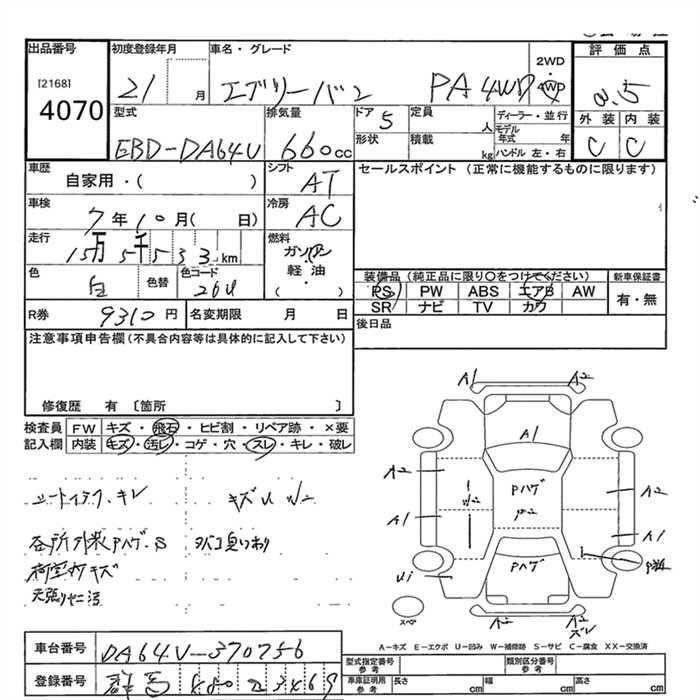 出品番号 初度登録年月 車名・グレード 2WD 評価点
[2168] 4070 21 月 エブリーバン PA 4WD 4WD 3.5
型式 排気量 ドア 5 定員 人 ディーラー・並行 外装 内装
EBD-DA64V 660cc 形状 積載 kg モデル年式 年 ハンドル 左・右 C C
車歴 シフト セールスポイント (正常に機能するものに限ります)
自家用・( ) AT
車検 冷房
7年10月( 日) AC
走行 燃料
15万5千533km ガソリン
色 色替 色コード 軽油 装備品 (純正品に限り○をつけてください) 新車保証書
白 26U ( ) PS PW ABS エアB AW 有・無
SR ナビ TV カワ
R券 9310円 名変期限 月 日 後日品
注意事項申告欄 (不具合内容等は具体的に記入して下さい)
修復歴 有 〔箇所 〕
検査員 FW キズ・飛石・ヒビ割・リペア跡・×要
記入欄 内装 キズ・汚レ・コゲ・穴・スレ・キレ・破レ
キズU W2
各所外装Pハゲ・S タバコ臭いあり
荷室内キズ
A1 A2
A1
A2 Pハゲ A2
A1 A1
Pハゲ
A2 A2
スペア
A-キズ E-エクボ U-凹み W-補修跡 S-サビ C-腐食 XX-交換済
車台番号 DA64V-370756
型式指定番号 参考 類別区分番号 参考
登録番号 群馬 480 2 3469
車庫証明用 参考 長さ cm 幅 cm 高さ cm